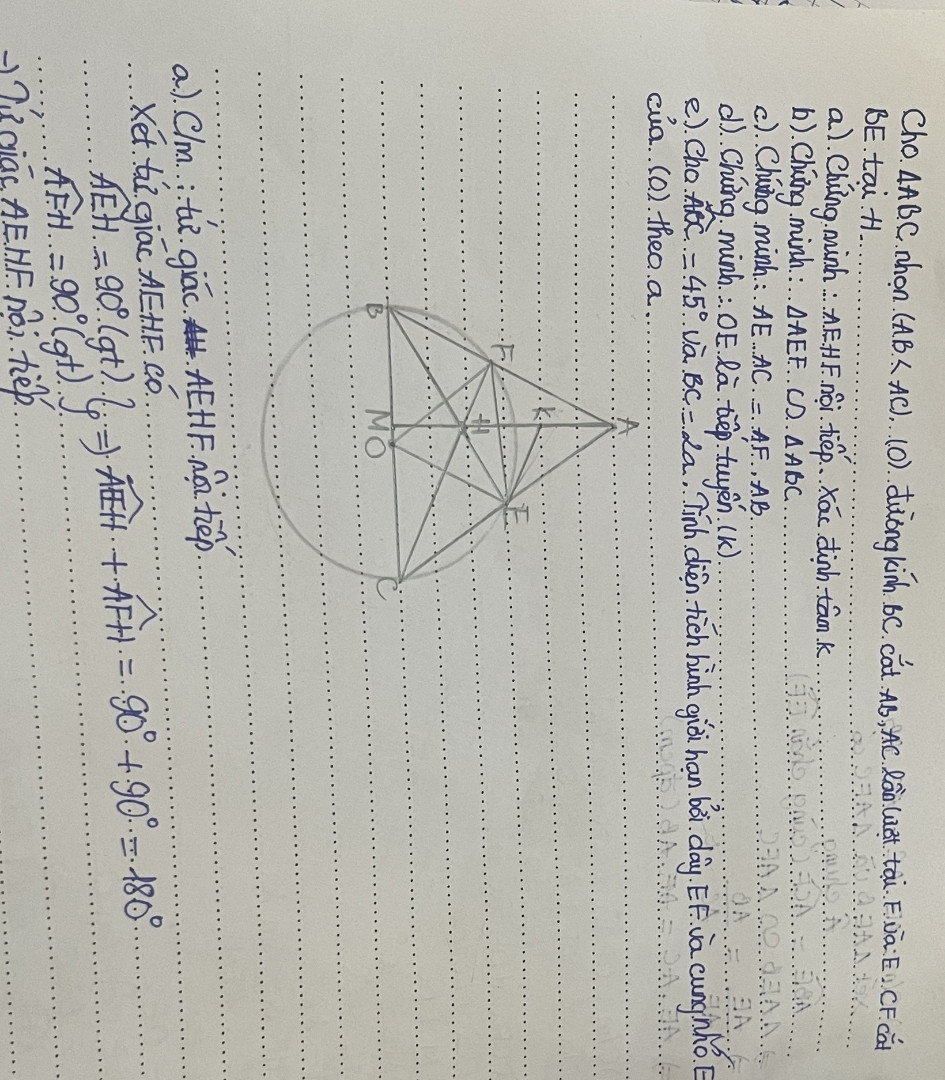 Cho ΔABC nhọn (AB < AC). (O) đường kính BC cắt AB, AC lần lượt tại F và E. CF cắt
BE tại H.
a) Chứng minh: AEHF nội tiếp. Xác định tâm K
b) Chứng minh: ΔAEF ∽ ΔABC
c) Chứng minh: AE.AC = AF.AB
d) Chứng minh: OE là tiếp tuyến (K)
e) Cho = 45° và BC = 2a. Tính diện tích hình giới hạn bởi dây EF và cung nhỏ E
của (O) theo a.
A
K
F
E
H
B
M
O
C
a) C/m: tứ giác AEHF nội tiếp
Xét tứ giác AEHF có
AEH = 90° (gt) } => AEH + AFH = 90° + 90° = 180°
AFH = 90° (gt)
→ Tứ giác AEHF nội tiếp